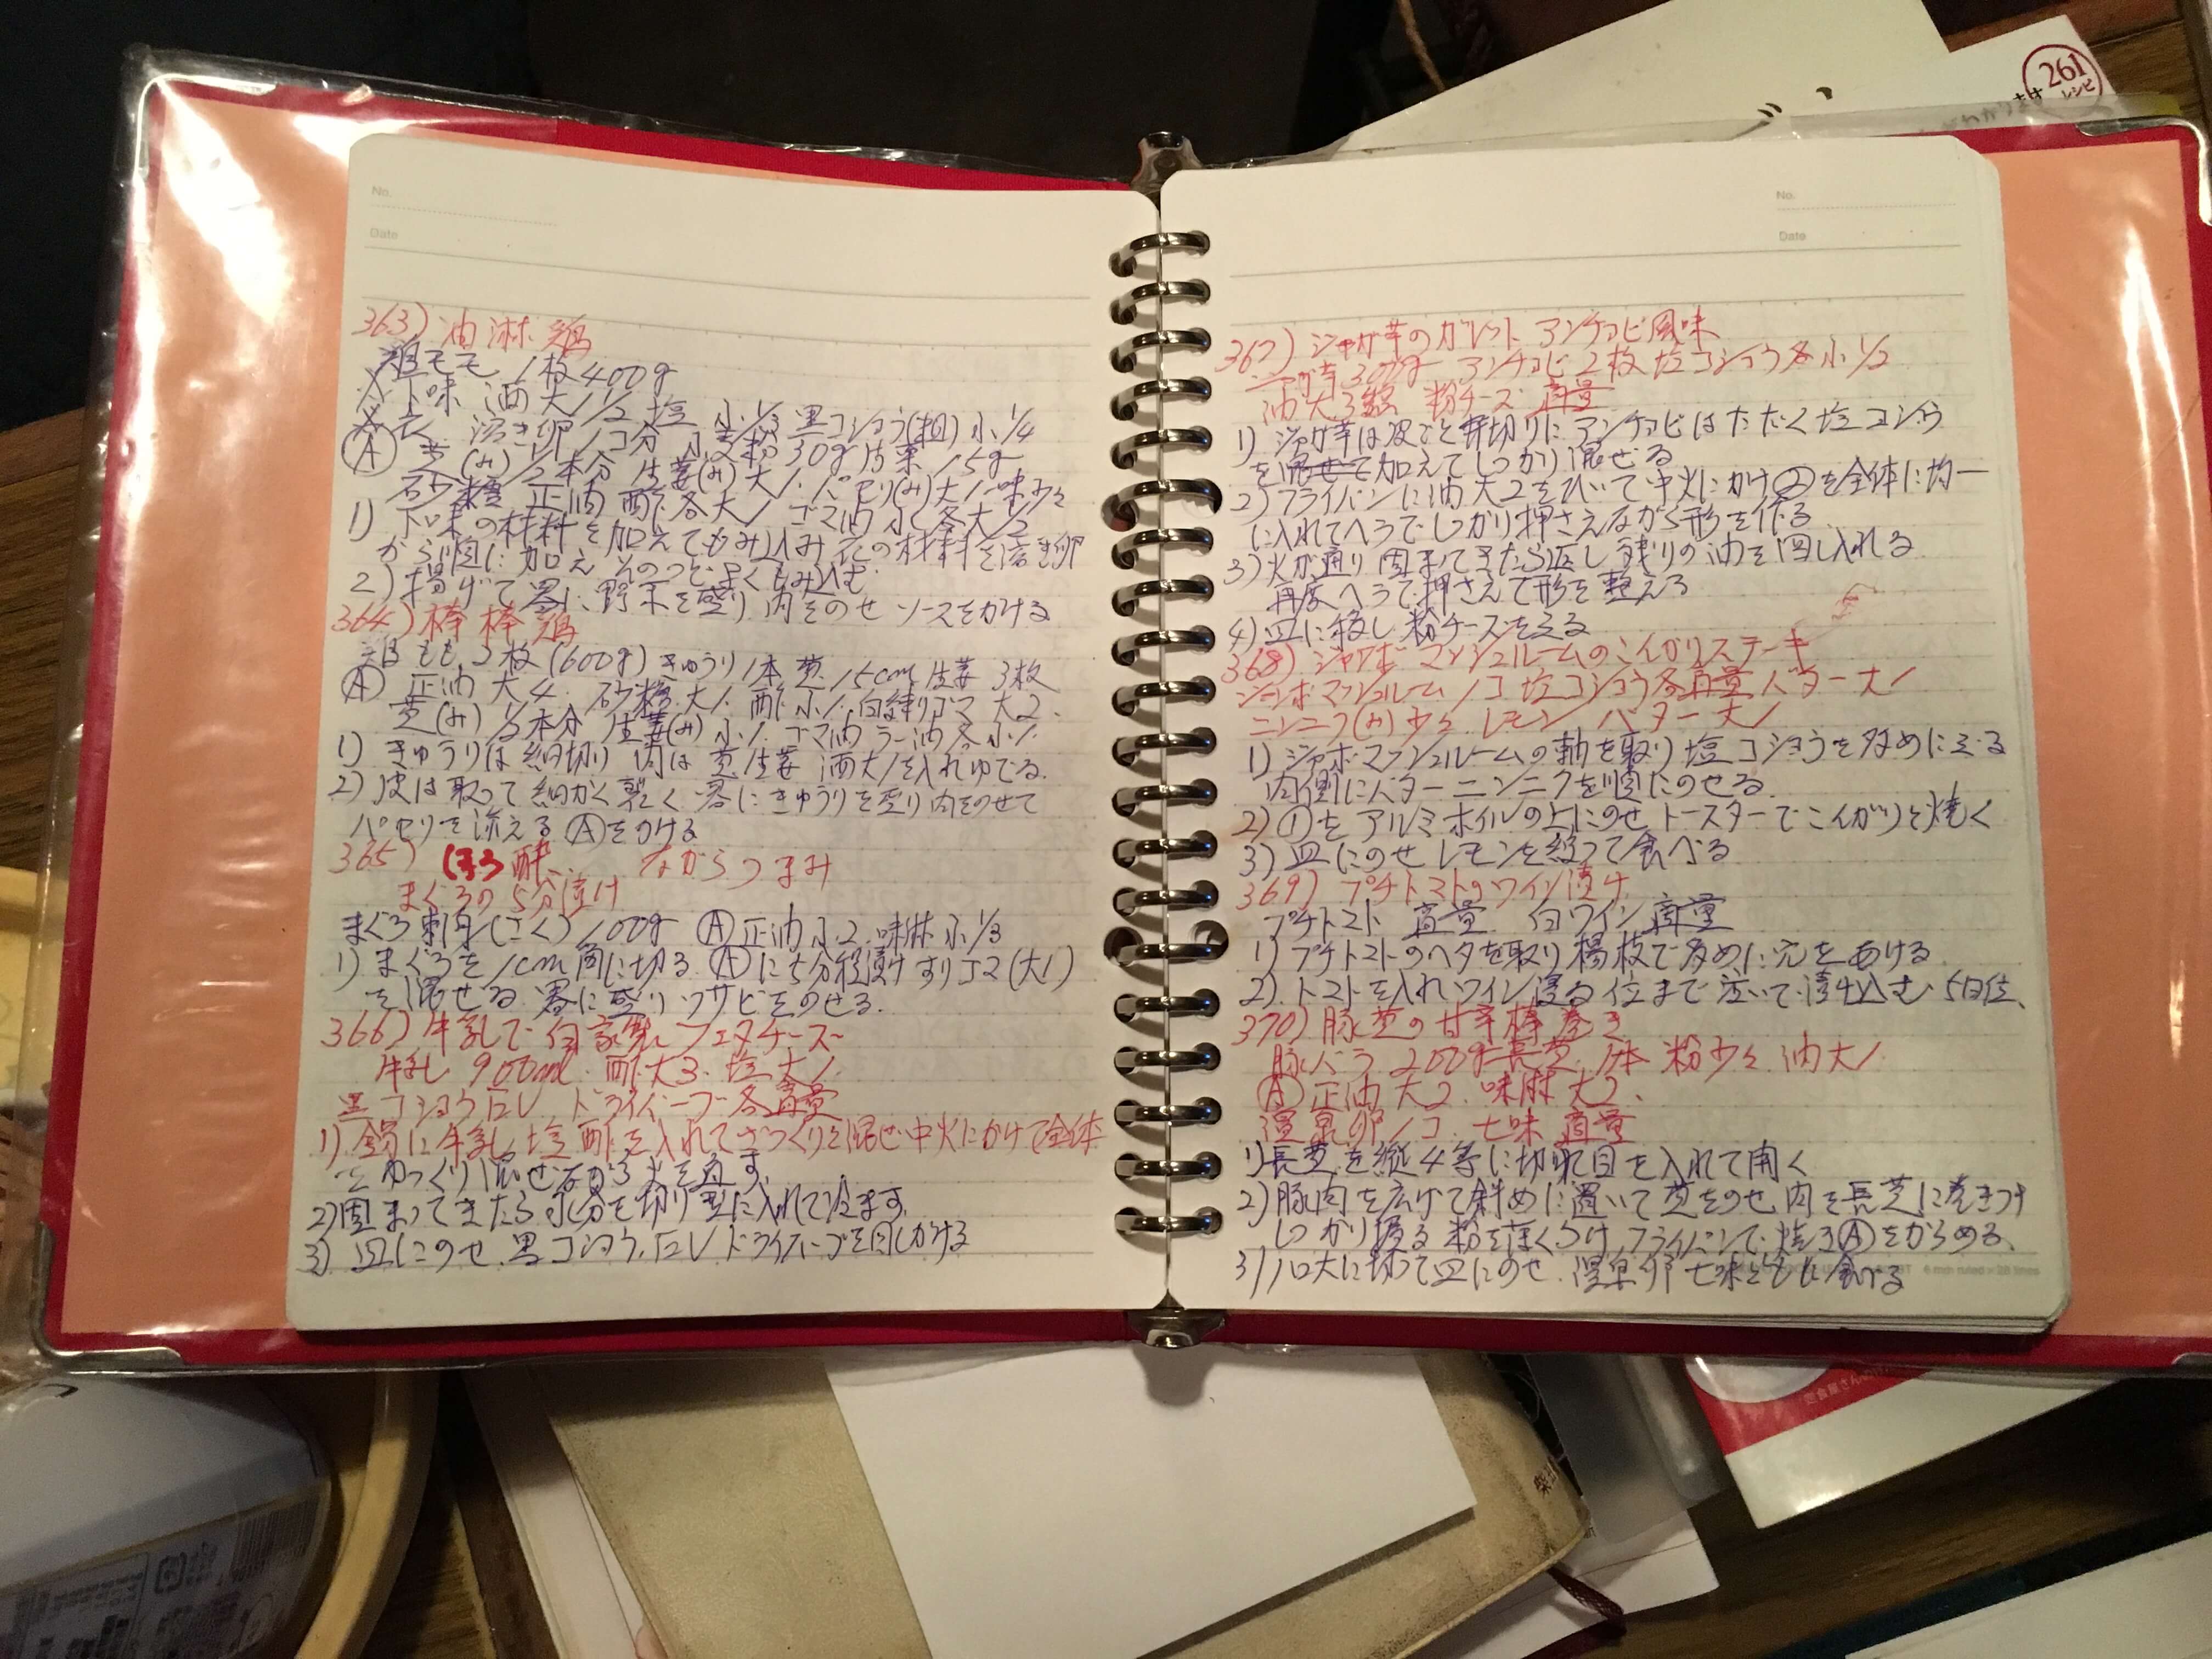 No.
Date
363) 油淋鶏
鶏モモ 1枚400g
下味 酒大1/2 塩 小1/3 黒コショウ(粗)小1/4
衣 溶き卵1コ分 小麦粉30g 片栗15g
Ⓐ 葱(み)1/2本分 生姜(み)大1 パセリ(み)大1 一味少々
砂糖 正油 酢 各大1 ゴマ油 水 各大1/2
1) 下味の材料を加えてもみ込み 衣の材料を溶き卵
から順に加え そのつどよくもみ込む
2) 揚げて器に野菜を盛り 肉をのせ ソースをかける
364) 棒棒鶏
鶏もも 2枚(600g) きゅうり1本 葱15cm 生姜3枚
Ⓐ 正油 大4 砂糖 大1 酢 小1 白練りゴマ 大2
葱(み) 1/3本分 生姜(み)小1 ゴマ油 ラー油 各小1
1) きゅうりは細切り 肉は葱 生姜 酒大1を入れゆでる
2) 皮は取って細かく裂く 器にきゅうりを盛り肉をのせて
パセリを添える Ⓐをかける
365) ほろ酔 ながらつまみ
まぐろの5分漬け
まぐろ刺身(さく) 100g Ⓐ正油 小2 味醂 小1/3
1) まぐろを1cm角に切る Ⓐに5分程漬け すりゴマ(大1)
を混ぜる 器に盛り ワサビをのせる
366) 牛乳で自家製フェタチーズ
牛乳 900ml 酢大3 塩大1
黒コショウ ドライハーブ各適量
1) 鍋に牛乳 塩 酢を入れてざっくりと混ぜ中火にかけて全体
をゆっくり混ぜながら火を通す
2) 固まってきたら水分を切り型に入れて冷ます
3) 皿にのせ 黒コショウ ドライハーブを回しかける
No.
Date
367) ジャガ芋のガレット アンチョビ風味
ジャガ芋300g アンチョビ2枚 塩コショウ各小1/2
油大3 粉チーズ 適量
1) ジャガ芋は皮ごと千切りに アンチョビはたたく 塩コショウ
を加えてしっかり混ぜる
2) フライパンに油大2をひいて中火にかけ を全体に均一
に入れてヘラでしっかり押さえながら形を作る
3) 火が通り固まってきたら返し 残りの油を回し入れる
再度ヘラで押さえて形を整える
4) 皿に移し 粉チーズをふる
368) ジャンボマッシュルームのこんがりステーキ
ジャンボマッシュルーム 1コ 塩コショウ各適量 バター大1
ニンニク(み)少々 レモン バター大1
1) ジャンボマッシュルームの軸を取り塩コショウを多めにふる
内側にバター ニンニクを順にのせる
2) ①をアルミホイルの上にのせ トースターでこんがりと焼く
3) 皿にのせ レモンを絞って食べる
369) プチトマトのワイン漬け
プチトマト 適量 白ワイン 適量
1) プチトマトのヘタを取り 楊枝で多めに穴をあける
2) トマトを入れワイン浸る位まで注いで漬け込む 5日位
370) 豚葱の甘辛棒巻き
豚バラ 200g 長葱 1本 粉少々 油大1
Ⓐ正油大2 味醂大2
温泉卵1コ 七味 適量
1) 長葱を縦4等に切れ目を入れて開く
2) 豚肉を広げて斜めに置いて葱をのせ肉を長葱に巻きつけ
しっかり握る 粉を薄くつけ フライパンで焼き Ⓐをからめる
3) 1口大に切って皿にのせ 温泉卵 七味とともに食べる
261
レシピ